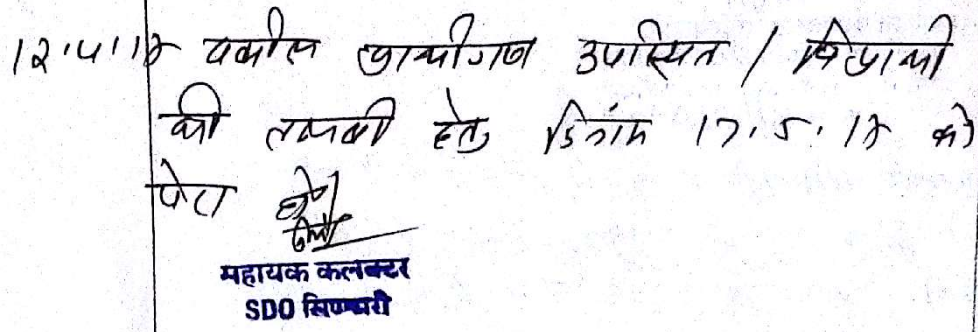 12.4.18 वकील प्रार्थीगण उपस्थित / विप्रार्थी
की तलबी हेतु दिनांक 17.5.18 को
पेश हो।
सहायक कलक्टर
SDO सिणधरी